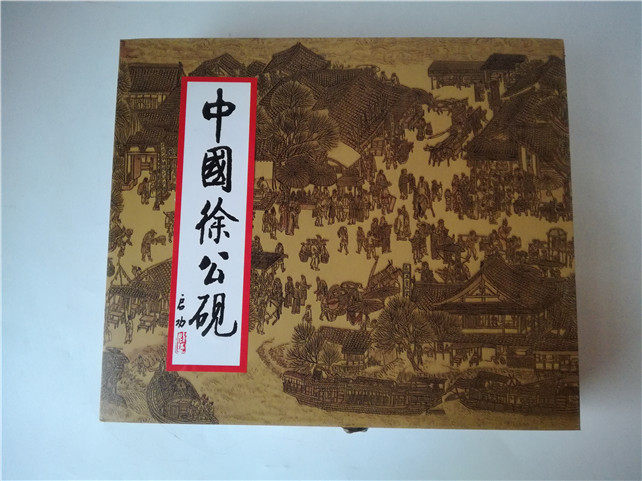 中國徐公硯
启功